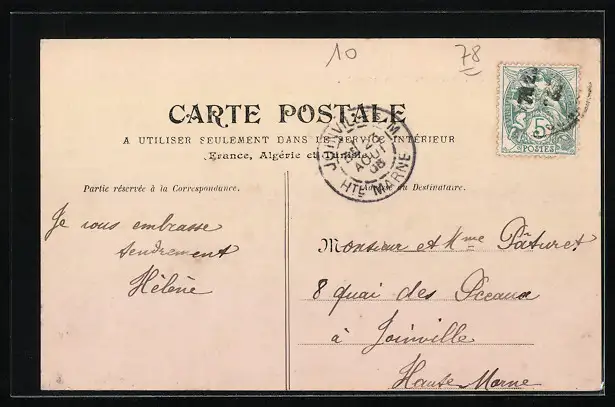 10
78
CARTE POSTALE
A UTILISER SEULEMENT DANS LE SERVICE INTÉRIEUR
France, Algérie et Tunisie
5
POSTES
JOINVILLE
AOUT
HTE MARNE
Partie réservée à la Correspondance.
du Destinataire.
Je vous embrasse
tendrement
Hélène
Monsieur et Mme Pâturet
8 quai des
à Joinville
Haute Marne